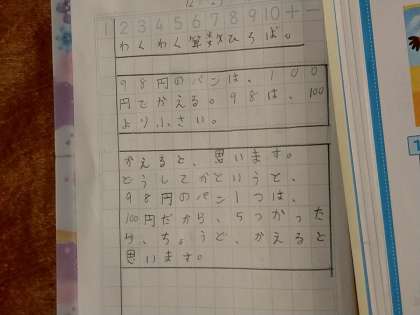 1 2 3 4 5 6 7 8 9 10 + −
わくわく算数ひろば。
98円のパンは、100
円でかえる。98は、100
より小さい。
かえると、思います。
どうしてかというと、
98円のパン1つは、
100円だから、5つかった
ら、ちょうど、かえると
思います。